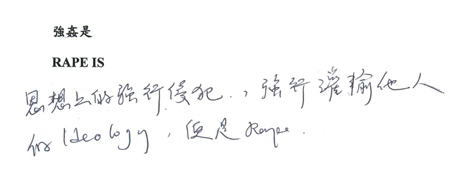 強姦是
RAPE IS
思想上的強行侵犯，強行灌輸他人
的 Ideology，便是 Rape.